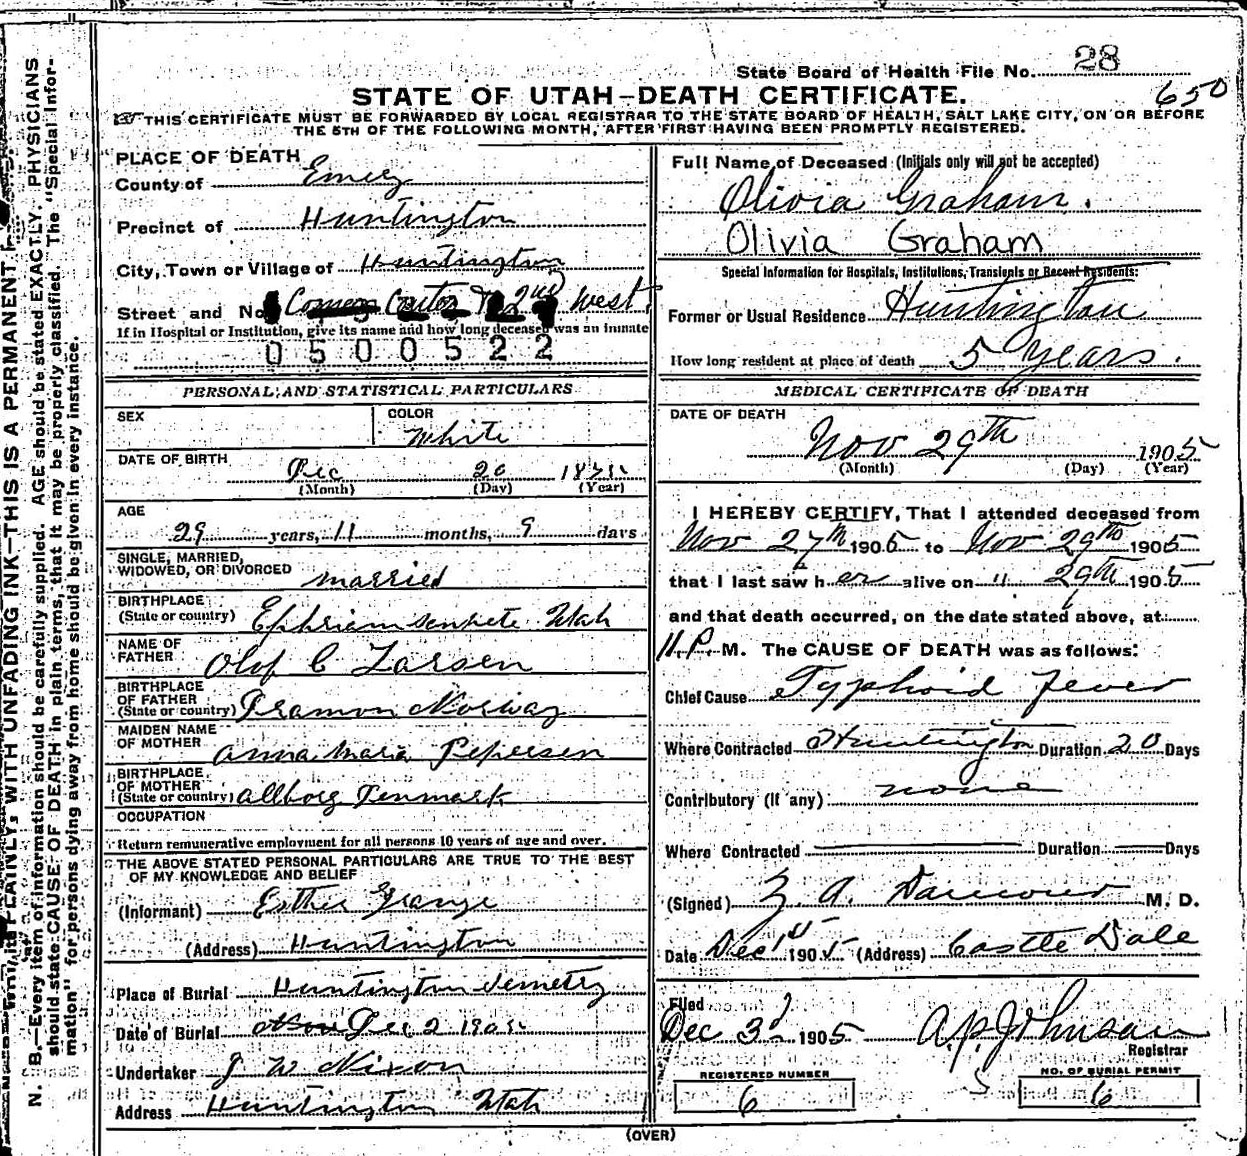 State Board of Health File No. 28
650
STATE OF UTAH-DEATH CERTIFICATE.
THIS CERTIFICATE MUST BE FORWARDED BY LOCAL REGISTRAR TO THE STATE BOARD OF HEALTH, SALT LAKE CITY, ON OR BEFORE
THE 5TH OF THE FOLLOWING MONTH, AFTER FIRST HAVING BEEN PROMPTLY REGISTERED.
PLACE OF DEATH
County of Emery
Precinct of Huntington
City, Town or Village of Huntington
Street and No. 2nd West
If in Hospital or Institution, give its name and how long deceased was an inmate
0500522
PERSONAL AND STATISTICAL PARTICULARS
SEX
COLOR
White
DATE OF BIRTH Dec 20 1875
(Month) (Day) (Year)
AGE
29 years, 11 months, 9 days
SINGLE, MARRIED,
WIDOWED, OR DIVORCED married
BIRTHPLACE
(State or country) Ephriem senpete Utah
NAME OF
FATHER Olof C Larsen
BIRTHPLACE
OF FATHER
(State or country) Dramon Norway
MAIDEN NAME
OF MOTHER Anna Maria Pepersen
BIRTHPLACE
OF MOTHER
(State or country) Allborg Denmark
OCCUPATION
Return remunerative employment for all persons 10 years of age and over.
THE ABOVE STATED PERSONAL PARTICULARS ARE TRUE TO THE BEST
OF MY KNOWLEDGE AND BELIEF
(Informant) Esther Grange
(Address) Huntington
Place of Burial Huntington Semetry
Date of Burial Nov Dec 2 1905
Undertaker J W Nixon
Address Huntington Utah
Full Name of Deceased (Initials only will not be accepted)
Olivia Graham.
Olivia Graham
Special Information for Hospitals, Institutions, Transients or Recent Residents:
Former or Usual Residence Huntington
How long resident at place of death 5 years.
MEDICAL CERTIFICATE OF DEATH
DATE OF DEATH
Nov 29th 1905
(Month) (Day) (Year)
I HEREBY CERTIFY, That I attended deceased from
Nov 27th 1905 to Nov 29th 1905
that I last saw her alive on " 29th 1905
and that death occurred, on the date stated above, at
11.P. M. The CAUSE OF DEATH was as follows:
Chief Cause Typhoid Fever
Where Contracted Huntington Duration 20 Days
Contributory (if any) none
Where Contracted Duration Days
(Signed) M. D.
Date Dec 1st 1905 (Address) Castle Dale
Filed
Dec 3d 1905 A.P. Johnson
Registrar
REGISTERED NUMBER
6
NO. OF BURIAL PERMIT
6
(OVER)
N. B.-Every item of information should be carefully supplied. AGE should be stated EXACTLY. PHYSICIANS
should state CAUSE OF DEATH in plain terms, that it may be properly classified. The "Special Infor-
mation" for persons dying away from home should be given in every instance.
PLAINLY, WITH UNFADING INK-THIS IS A PERMANENT